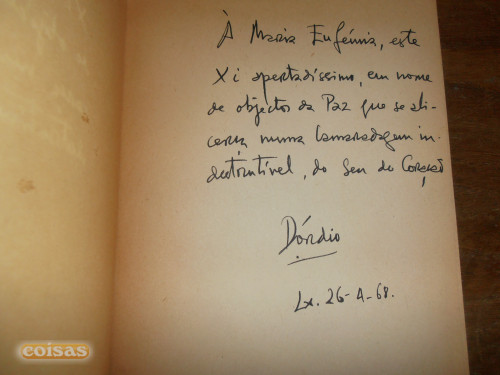 À Maria Eufémia, este
Xi apertadíssimo, em nome
de objectos da Paz que se ali-
cerça numa camaradagem in-
destrutível, do seu do Coração
Dórdio
Lx. 26-4-68.
coisas